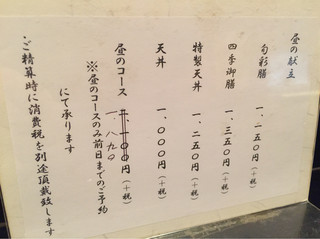 昼の献立
旬彩膳 一、一五〇円(+税)
四季御膳 一、三五〇円(+税)
特製天丼 一、二五〇円(+税)
天丼 一、〇〇〇円(+税)
昼のコース 一、八九〇円(+税)
※昼のコースのみ前日までのご予約
にて承ります
ご精算時に消費税を別途頂戴致します